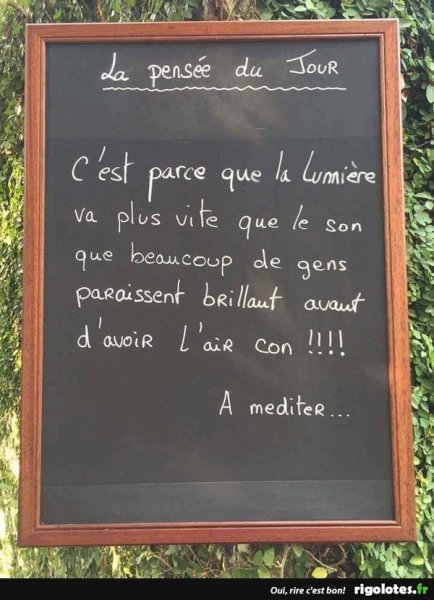 La pensée du Jour
C'est parce que la Lumière
va plus vite que le son
que beaucoup de gens
paraissent brillant avant
d'avoir l'air con !!!!
A mediter...
Oui, rire c'est bon! rigolotes.fr